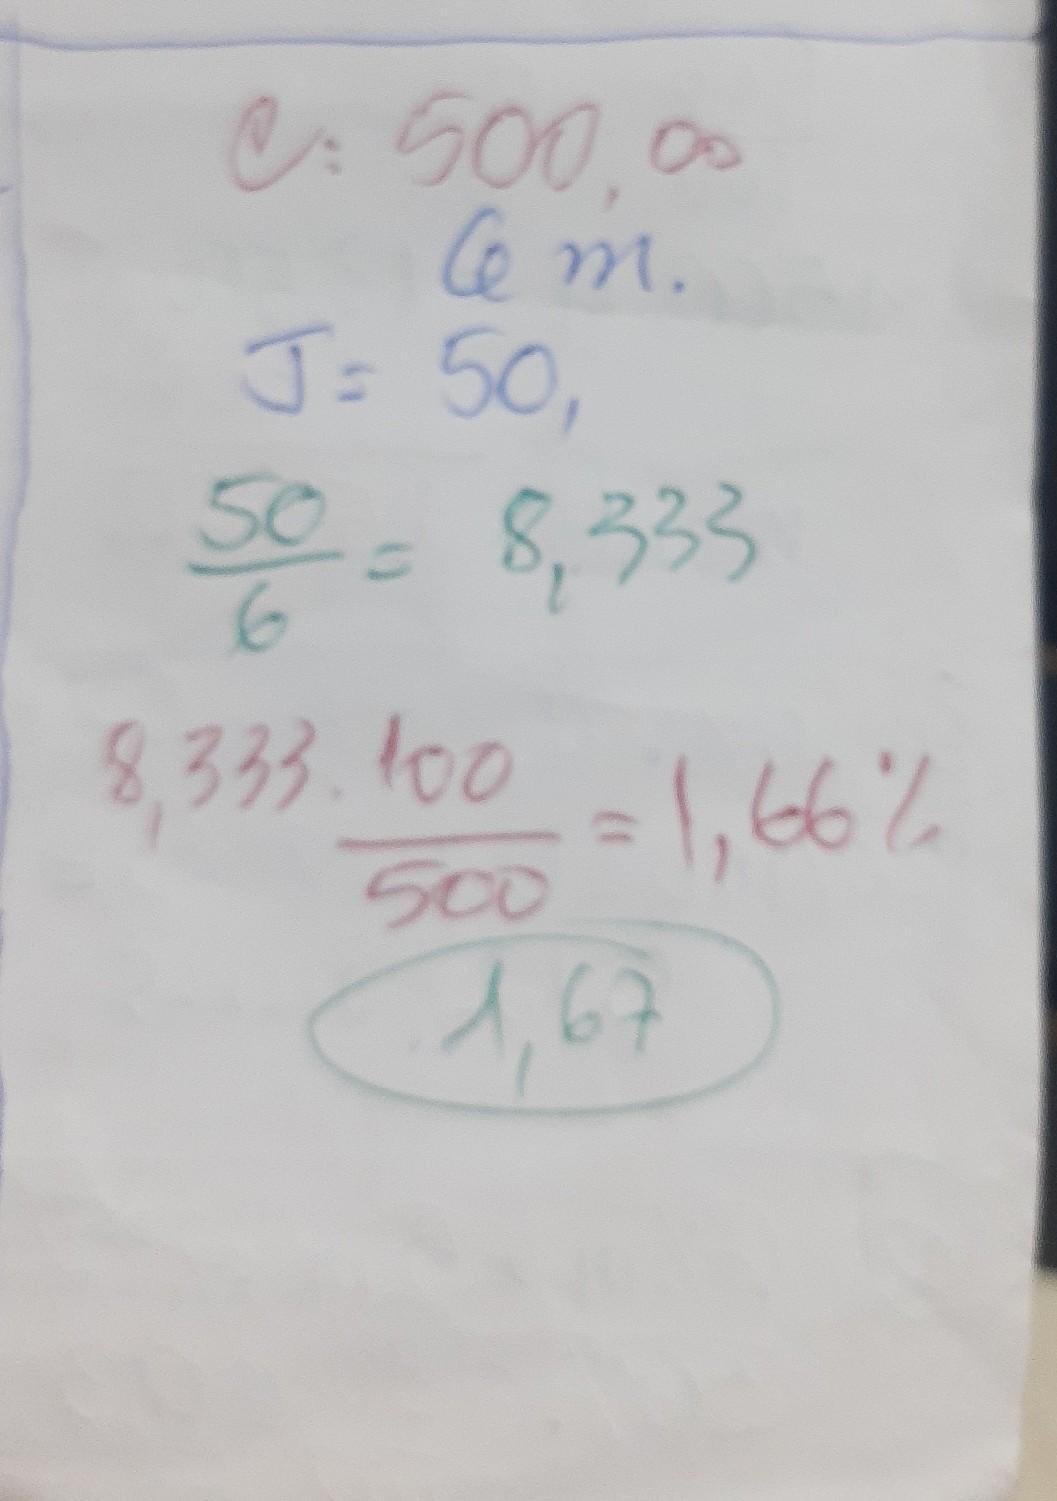 C: 500,00
6 m.
J= 50,
50
6
= 8,333
8,333. 100
500
= 1,66%
1,67